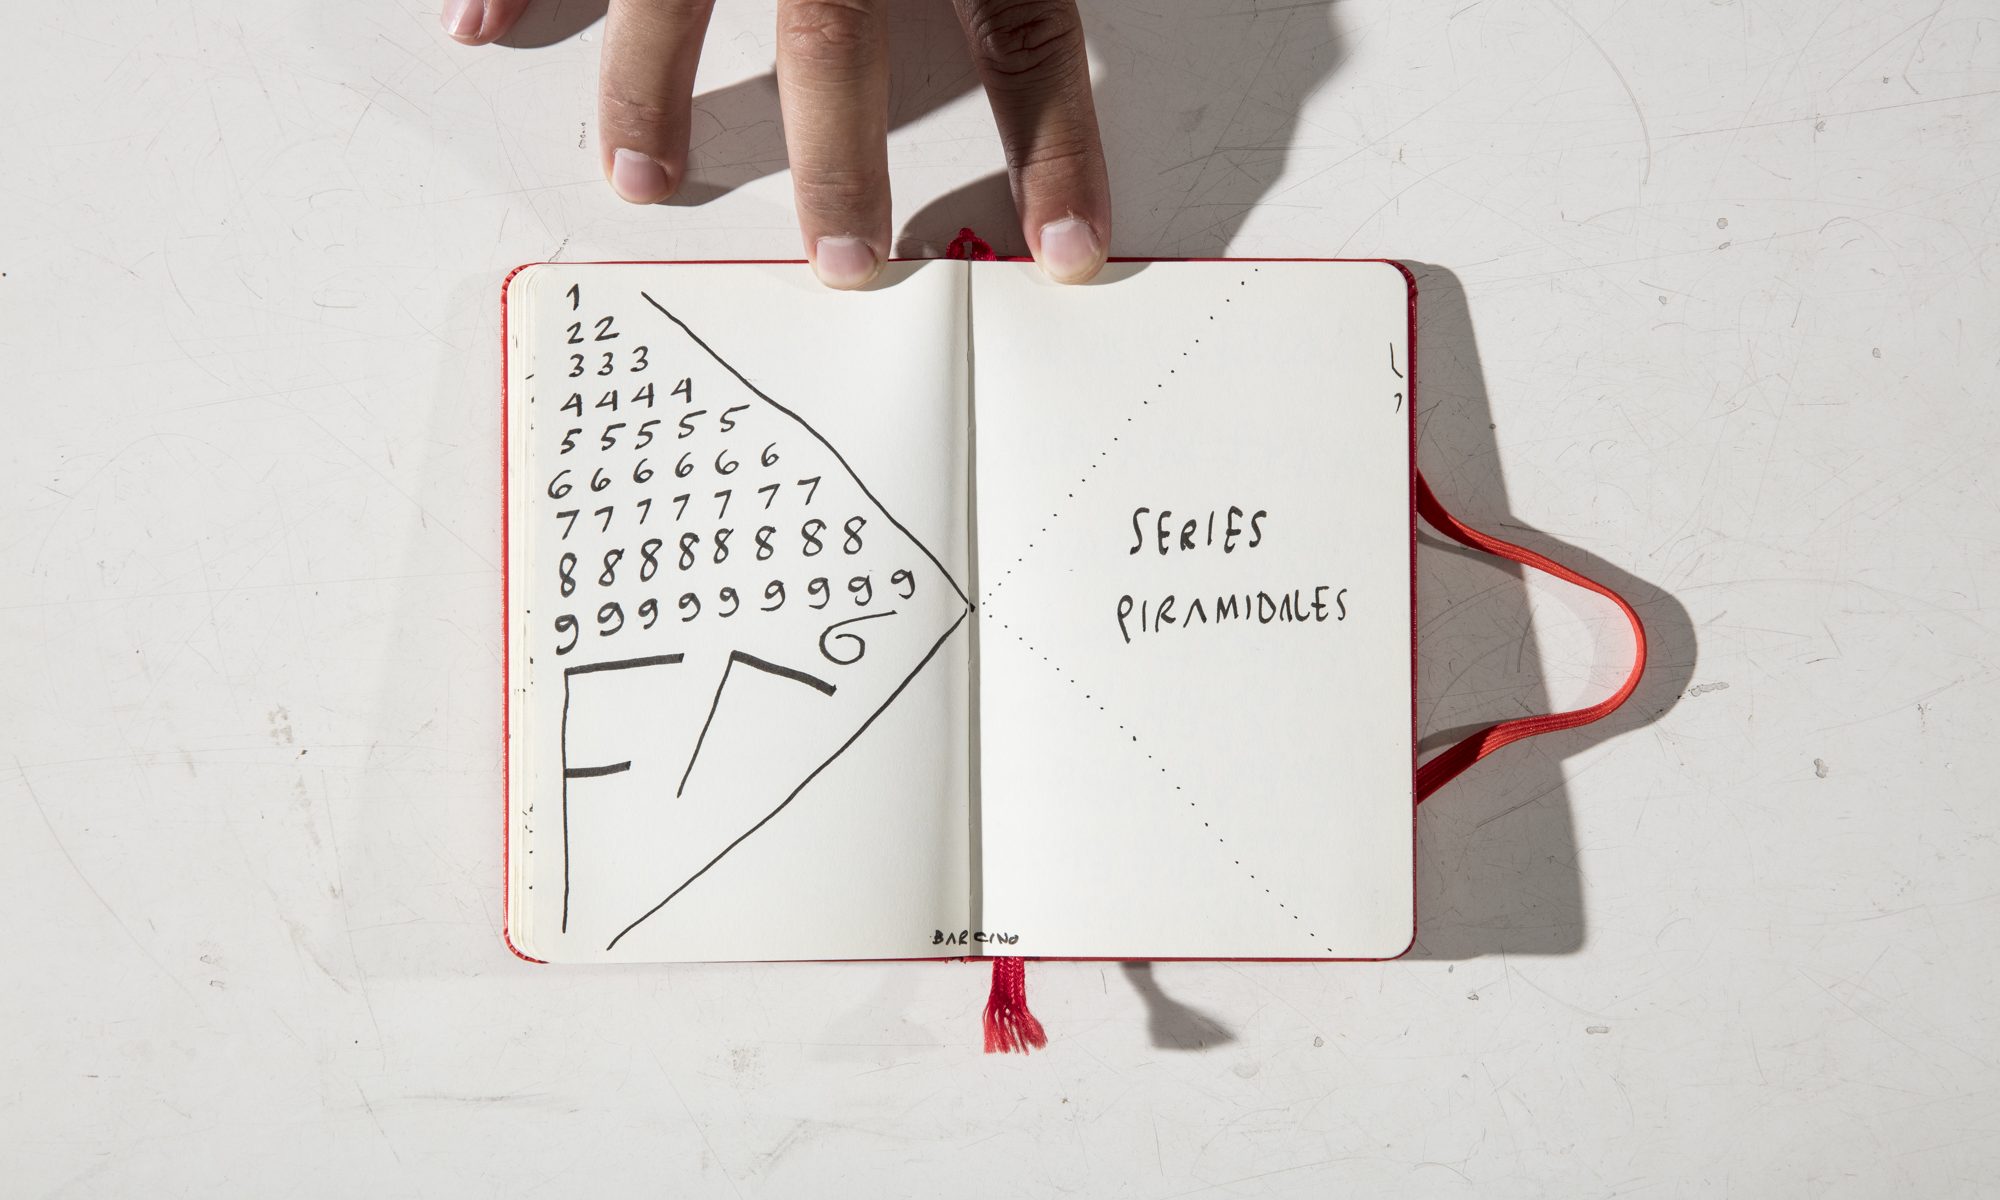 1
2 2
3 3 3
4 4 4 4
5 5 5 5 5
6 6 6 6 6 6
7 7 7 7 7 7 7
8 8 8 8 8 8 8 8
9 9 9 9 9 9 9 9 9
6
F
SERIES
PIRAMIDALES
BARCINO